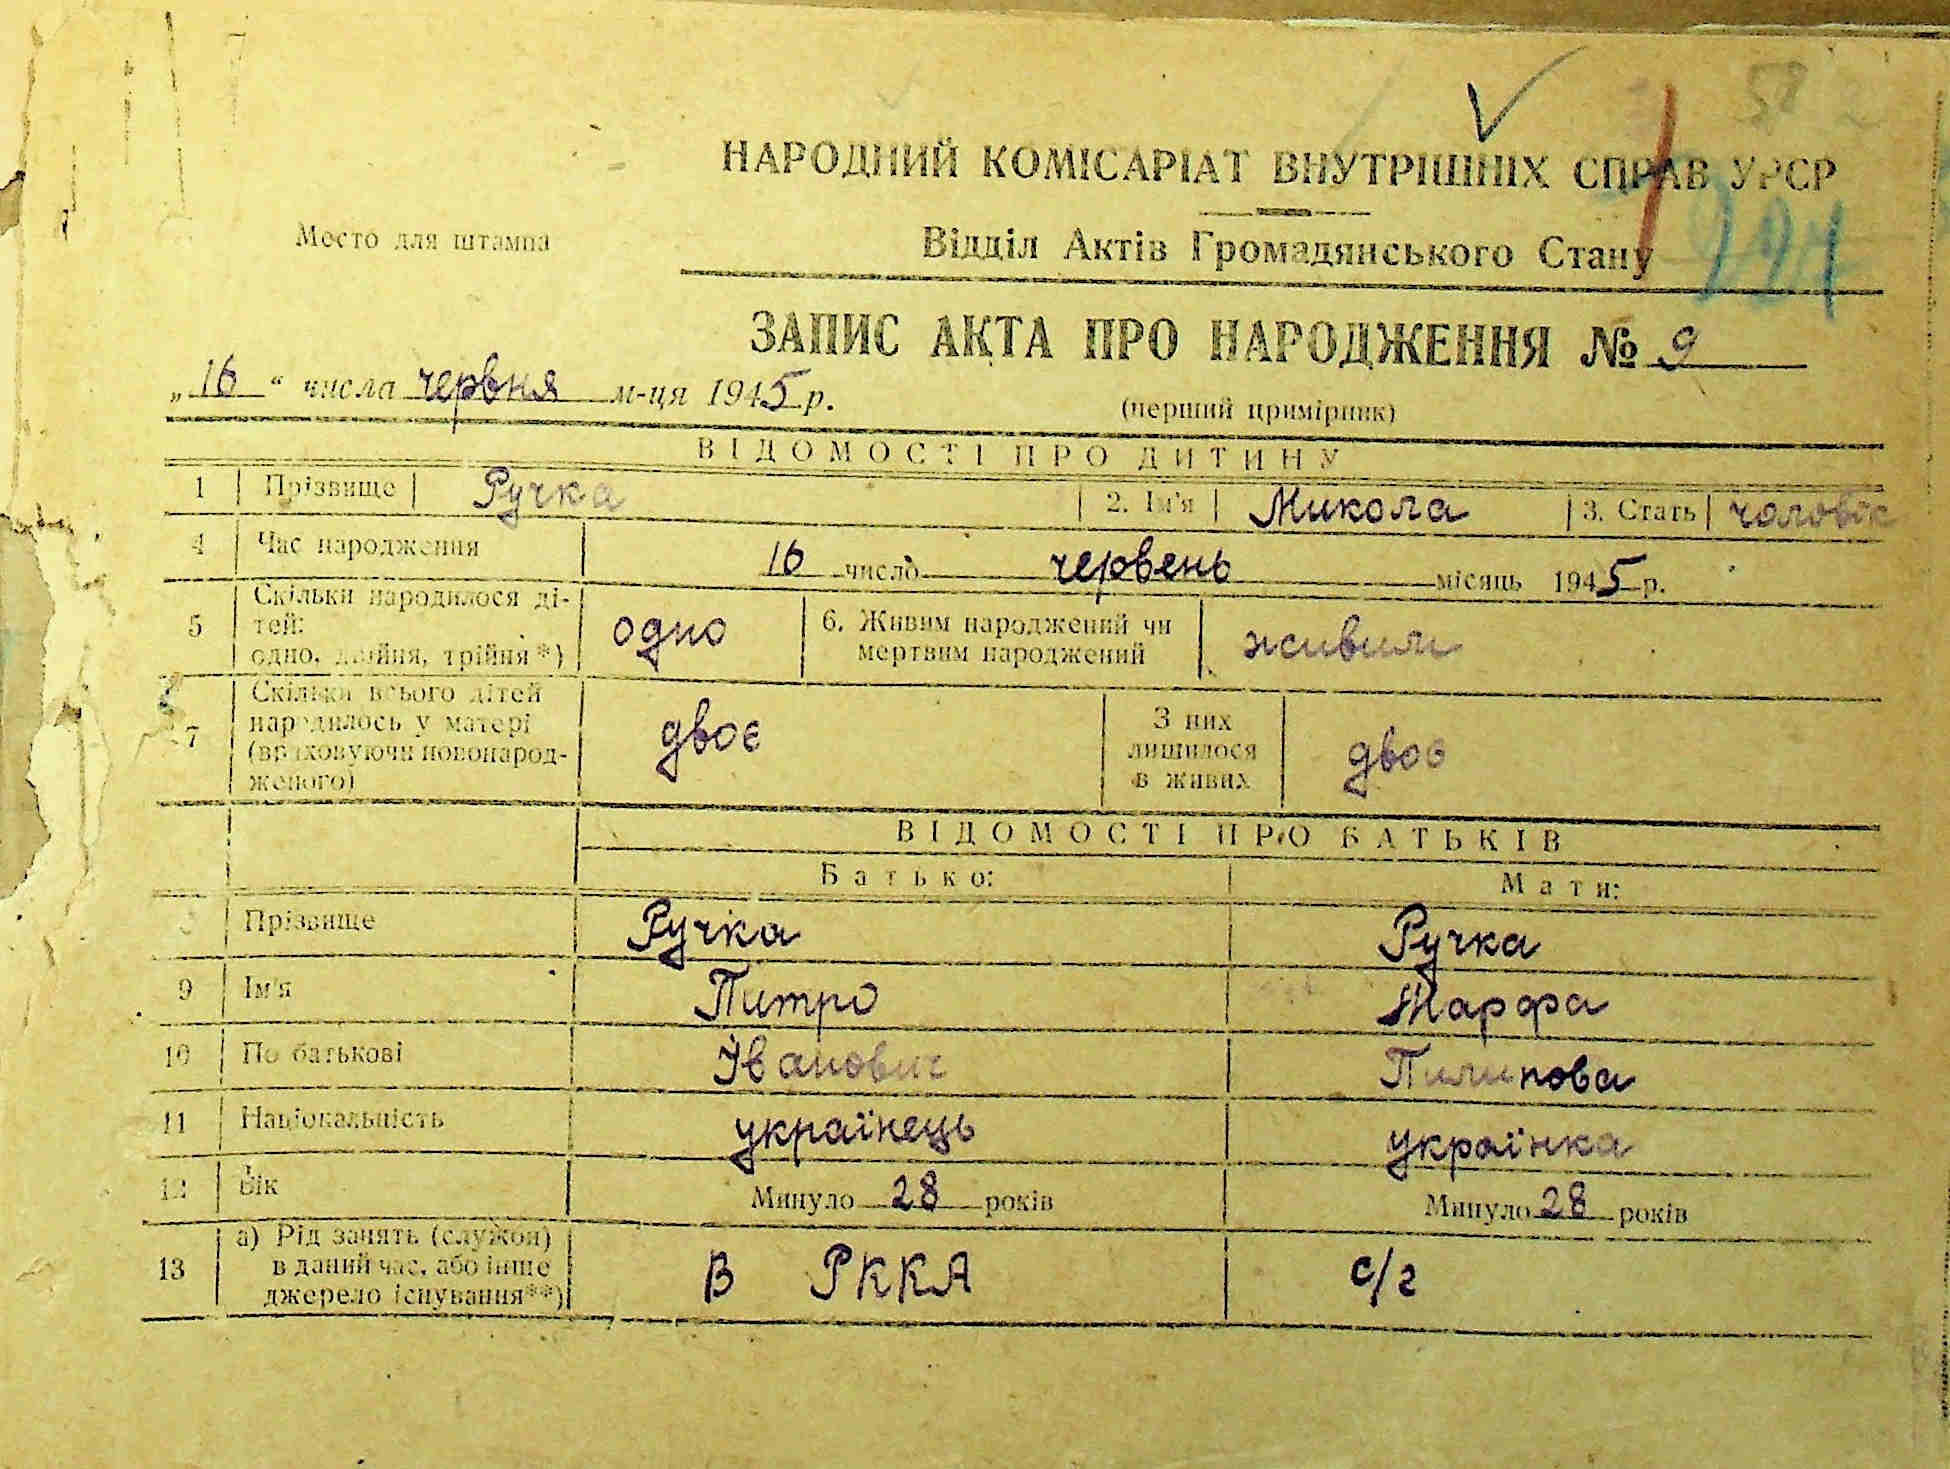 58
НАРОДНИЙ КОМІСАРІАТ ВНУТРІШНІХ СПРАВ УРСР
Место для штампа
Відділ Актів Громадянського Стану
ЗАПИС АКТА ПРО НАРОДЖЕННЯ № 9
„16“ числа червня м-ця 1945 р.
(перший примірник)
ВІДОМОСТІ ПРО ДИТИНУ
1 Прізвище Ручка 2. Ім'я Микола 3. Стать чоловік
4 Час народження 16 число червень місяць 1945 р.
5 Скільки народилося ді-
тей:
одно, двійня, трійня*) одно
6. Живим народжений чи
мертвим народжений живим
7 Скільки всього дітей
народилось у матері
(враховуючи новонарод-
женого) двоє
З них
лишилося
в живих двоє
ВІДОМОСТІ ПРО БАТЬКІВ
Батько: Мати:
Прізвище Ручка Ручка
9 Ім'я Питро Марфа
10 По батькові Іванович Пилипова
11 Національність українець українка
12 Вік Минуло 28 років Минуло 28 років
13 а) Рід занять (служби)
в даний час, або інше
джерело існування**) В РККА с/г